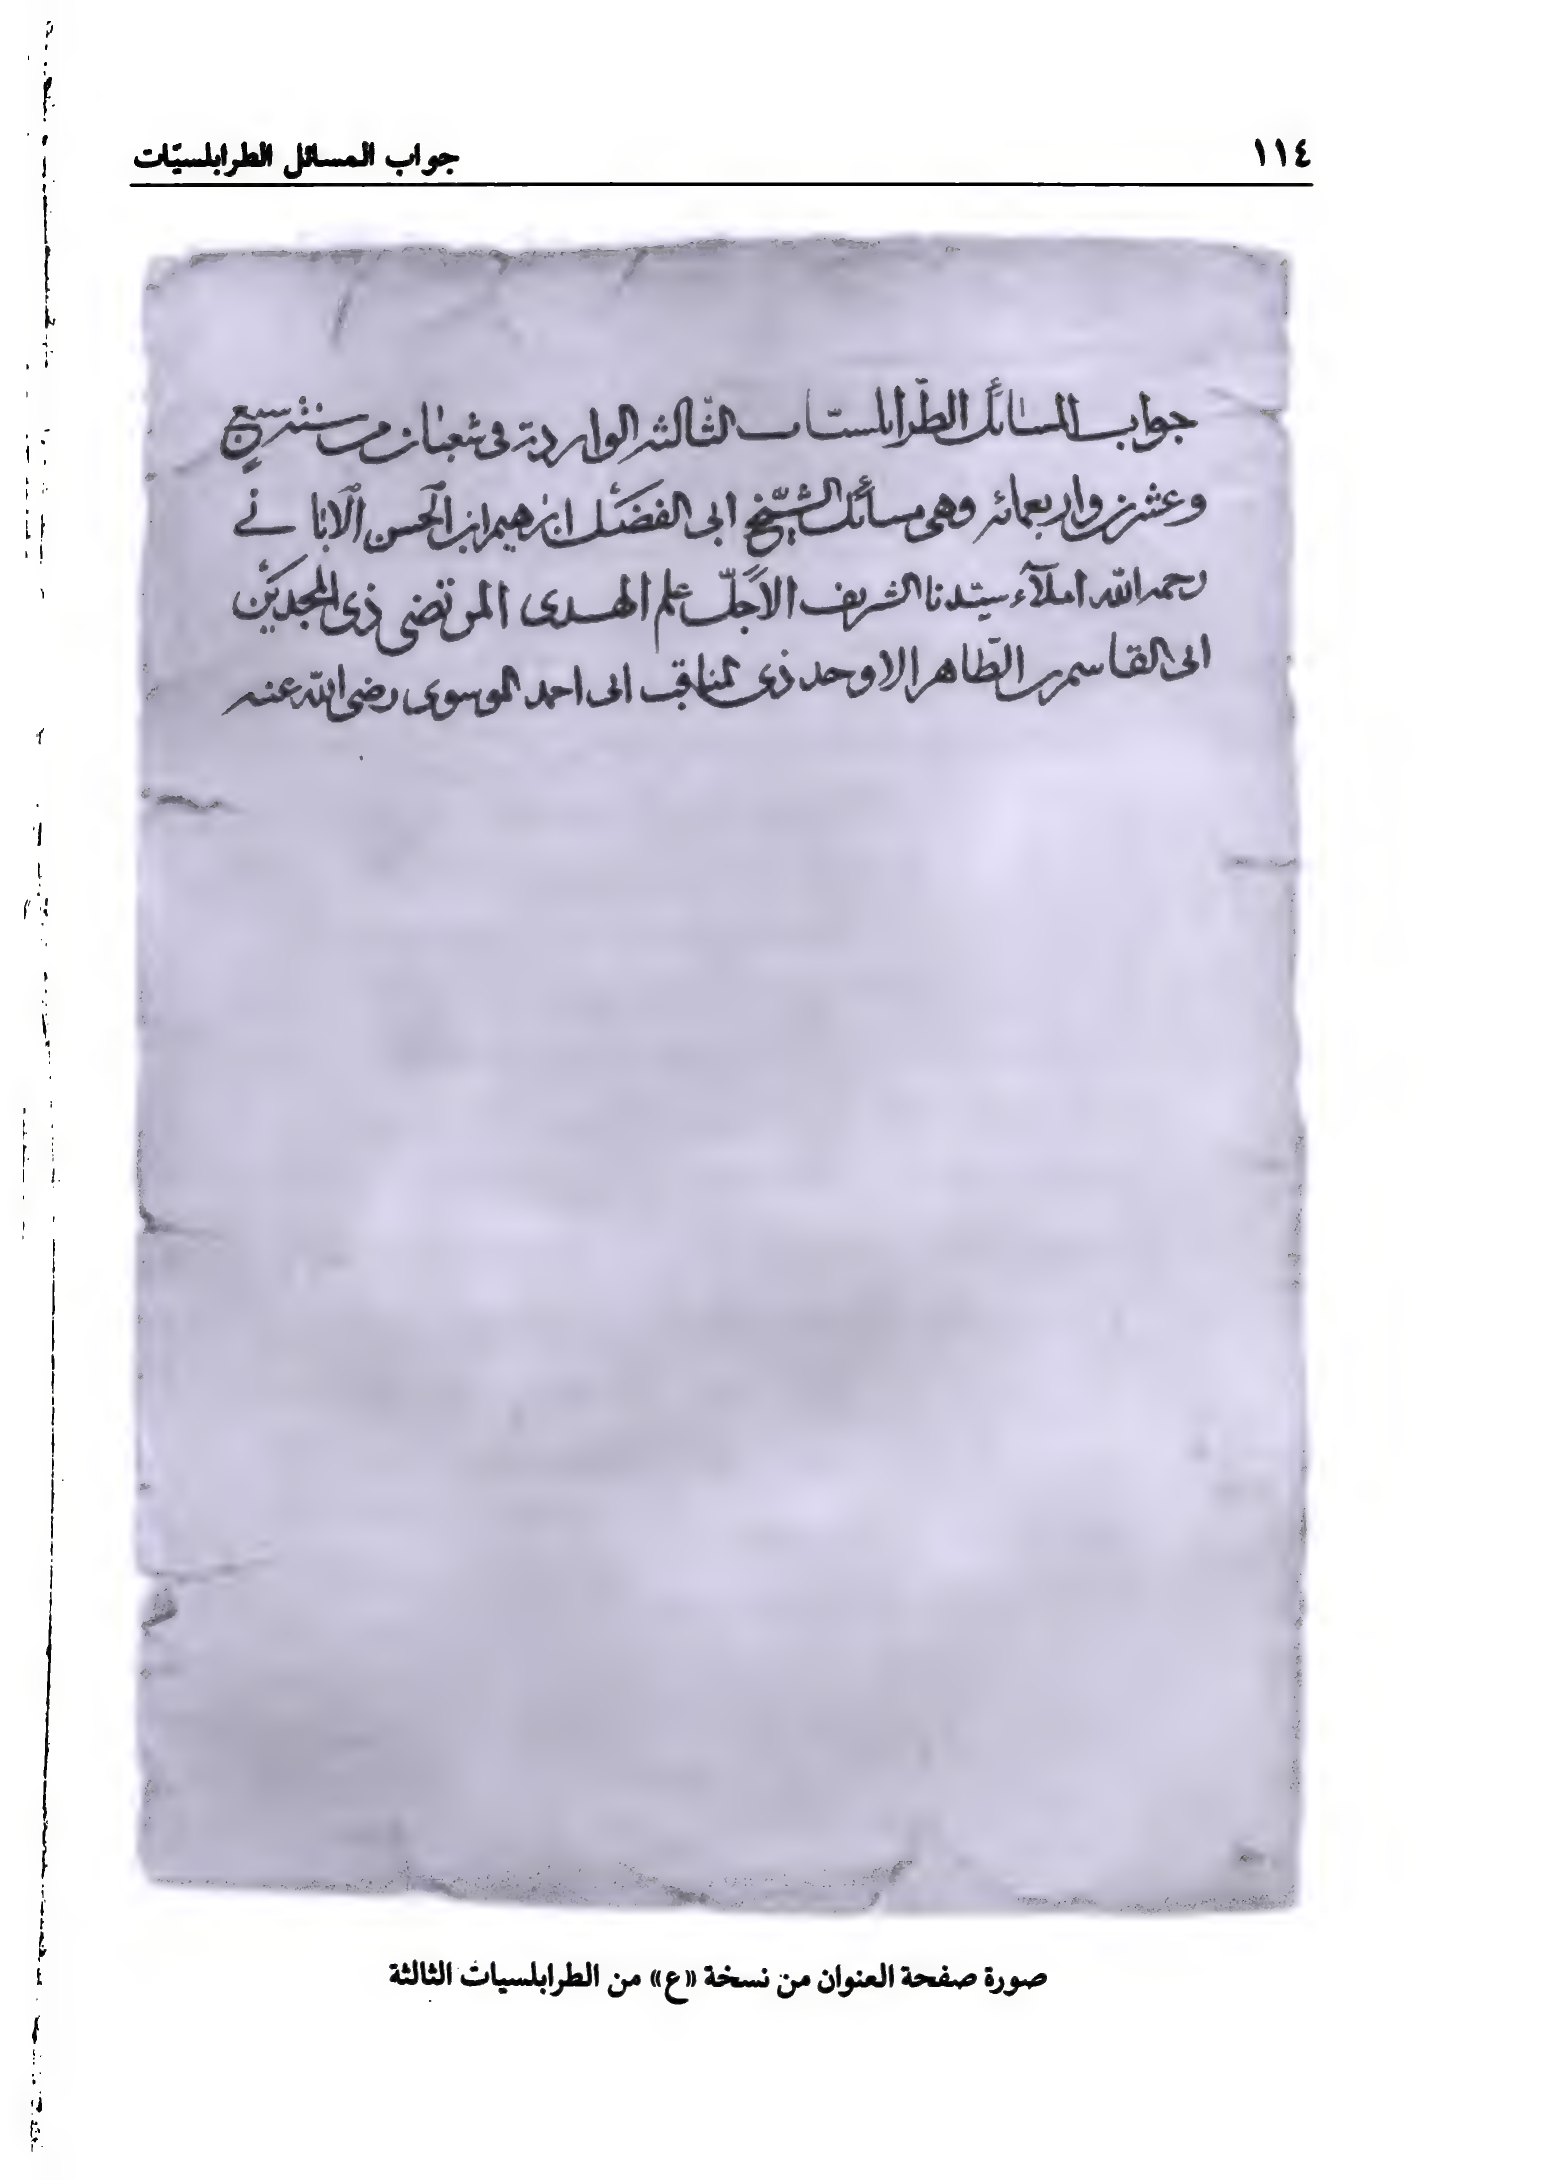 ١١٤ جواب المسائل الطرابلسيّات
جواب المسائل الطّرابلسيّات الثّالثة الواردة فى شعبان من سنة سبع
وعشرين واربعمائة وهى مسائل الشّيخ ابى الفضل ابرٰهيم ابن الحسن الابانى
رحمه الله املآء سيّدنا الشريف الاجلّ علم الهدى المرتضى ذى المجدين
ابى القاسم بن الطّاهر الاوحد ذى المناقب ابى احمد الموسوى رضى الله عنه
صورة صفحة العنوان من نسخة «ع» من الطرابلسيات الثالثة